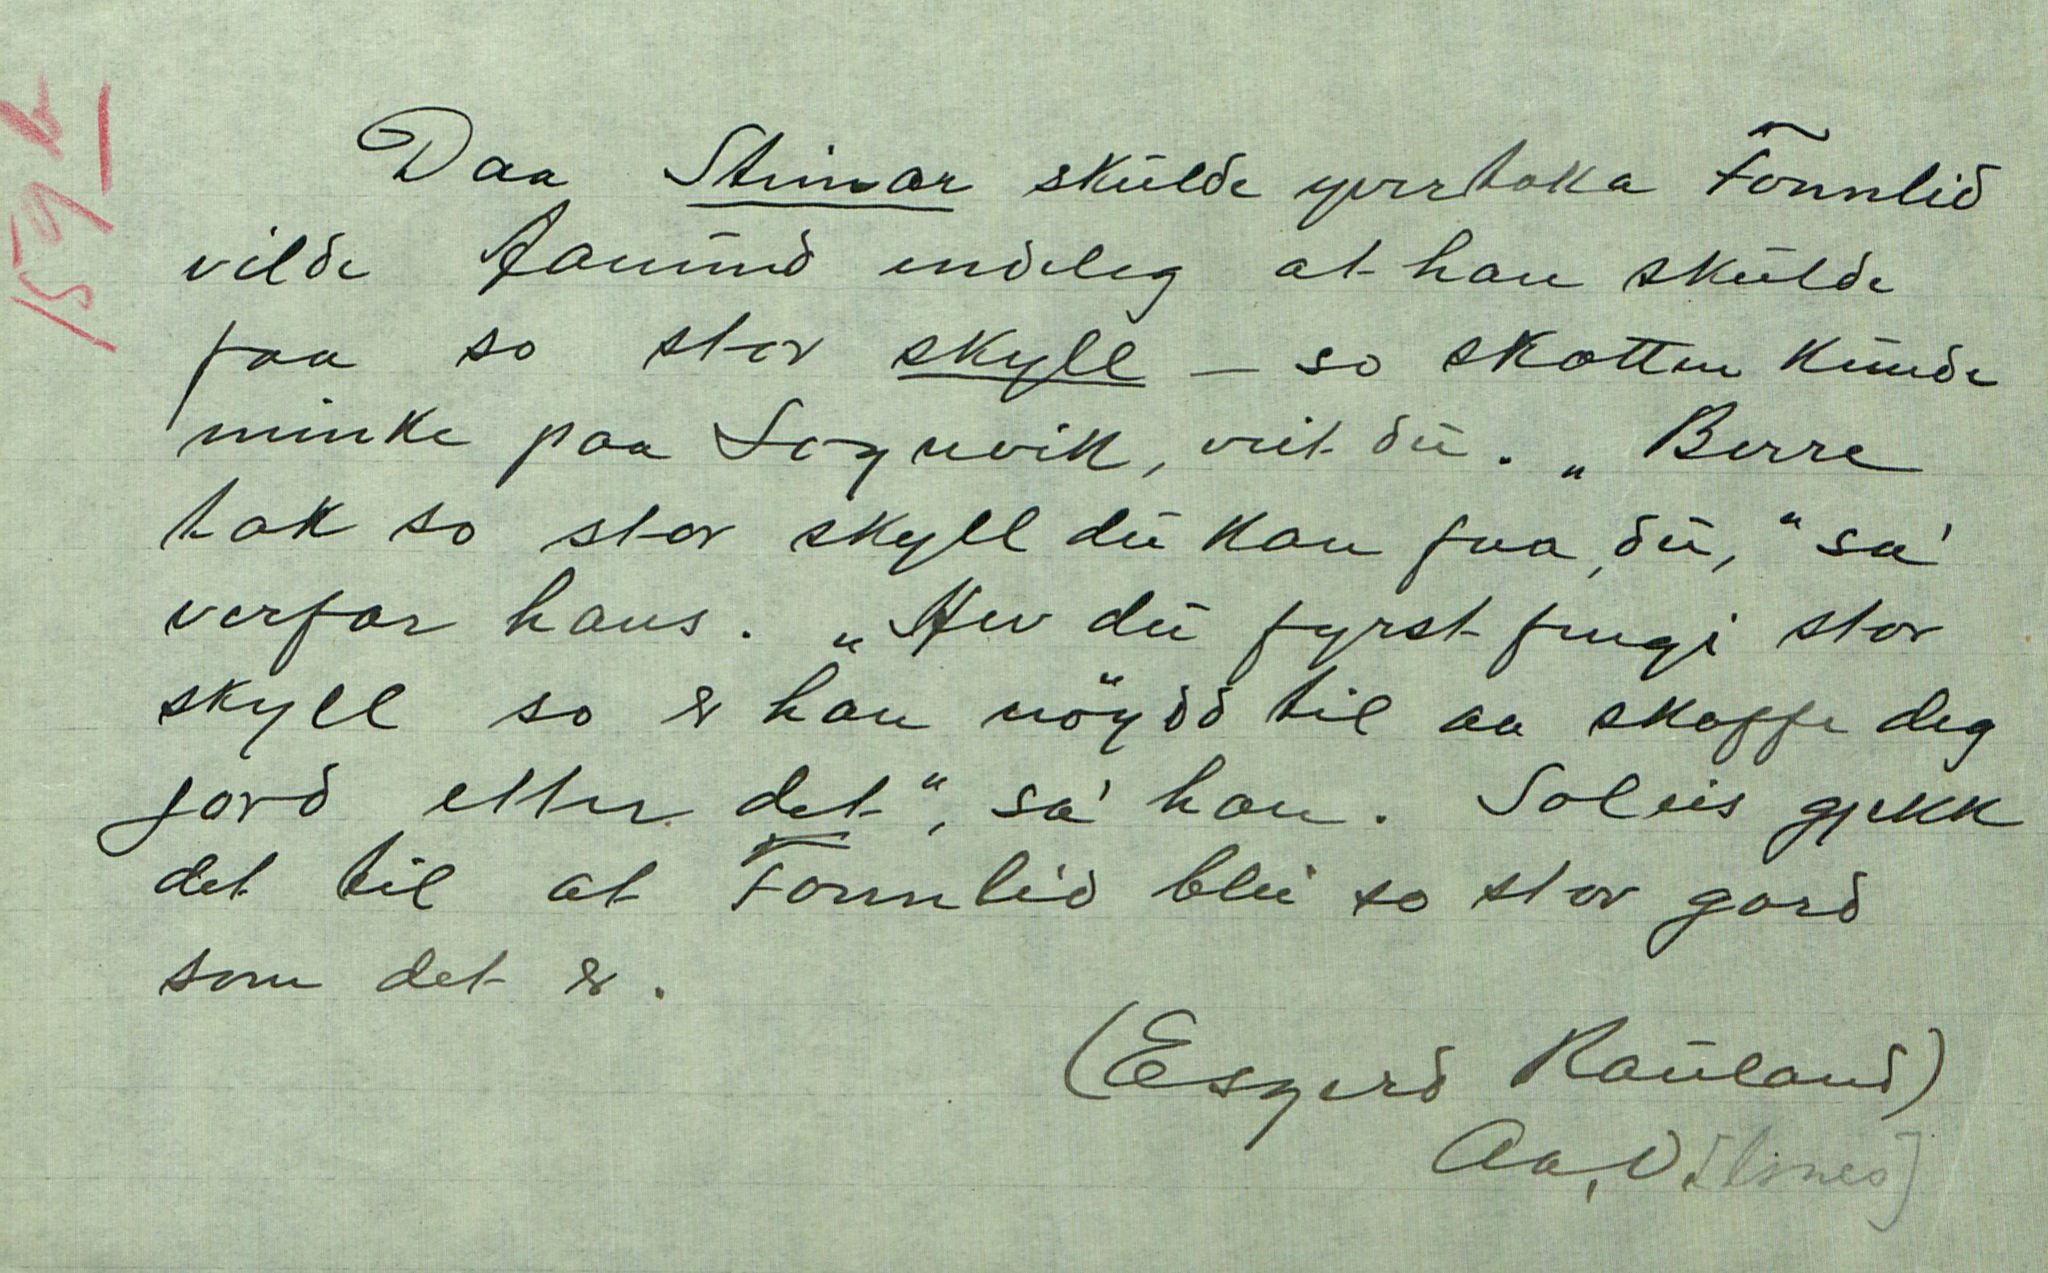 159 b
Daa Steinar skulde yvertaka Fonnlid
vilde Aamund endeleg at han skulde
faa so stor skyll – so skatten kunde
minke paa Lognvik, veit du. „Berre
tak so stor skyll du kan faa, du,“ sa'
verfar hans. „Hev du fyrst fengi stor
skyll so er han nöydd til aa skaffe deg
jord etter det“, sa' han. Soleis gjekk
det til at Fonnlid blei so stor gard
som det er.
(Esgerd Rauland)
Aa. O. [Vines]